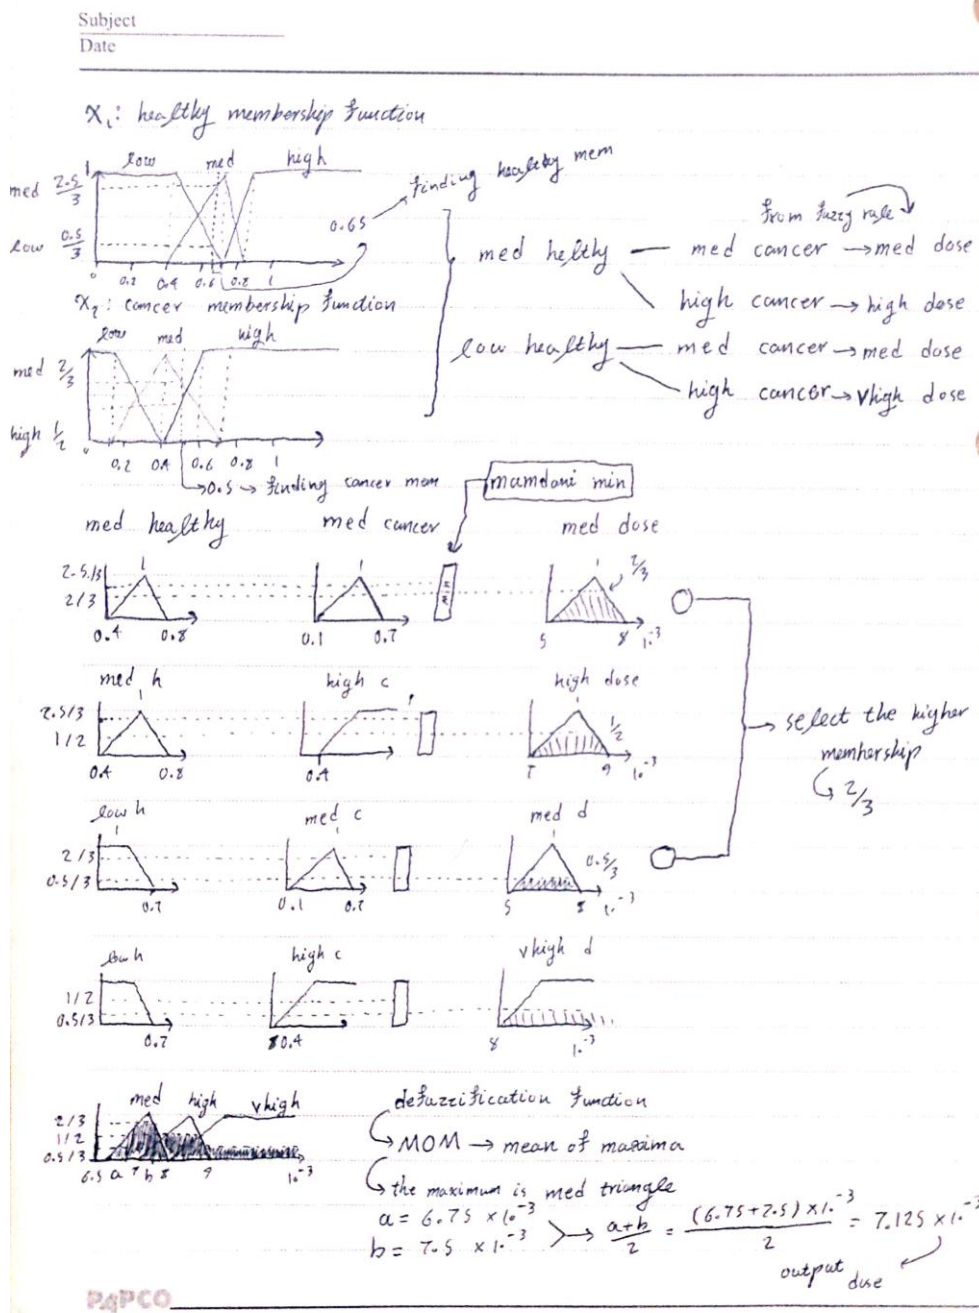 Subject
Date
X₁: healthy membership function
low med high
1
med 2.5/3
low 0.5/3
0 0.2 0.4 0.6 0.8 1
0.65 → finding healthy mem
X₂: cancer membership function
low med high
med 2/3
high 1/2
0 0.2 0.4 0.6 0.8 1
→ 0.5 → finding cancer mem
from fuzzy rule
med helthy — med cancer → med dose
high cancer → high dose
low healthy — med cancer → med dose
high cancer → vhigh dose
mamdani min
med healthy med cancer med dose
2.5/3 1 1 min 1 2/3
2/3
0.4 0.8 0.1 0.7 5 8 10⁻³
med h high c high dose
2.5/3 1 1 1 1/2
1/2
0.4 0.8 0.4 7 9 10⁻³
low h med c med d
1 1 1
2/3 0.5/3
0.5/3
0.7 0.1 0.7 5 8 10⁻³
low h high c vhigh d
1/2
0.5/3
0.7 0.4 8 10⁻³
→ select the higher
membership
2/3
med high vhigh
2/3
1/2
0.5/3
6.5 a 7 b 8 9 10⁻³
defuzzification function
→ MOM → mean of maxima
→ the maximum is med triangle
a = 6.75 × 10⁻³
b = 7.5 × 10⁻³ → a+b/2 = (6.75+7.5)×10⁻³/2 = 7.125 × 10⁻³
output dose
PAPCO